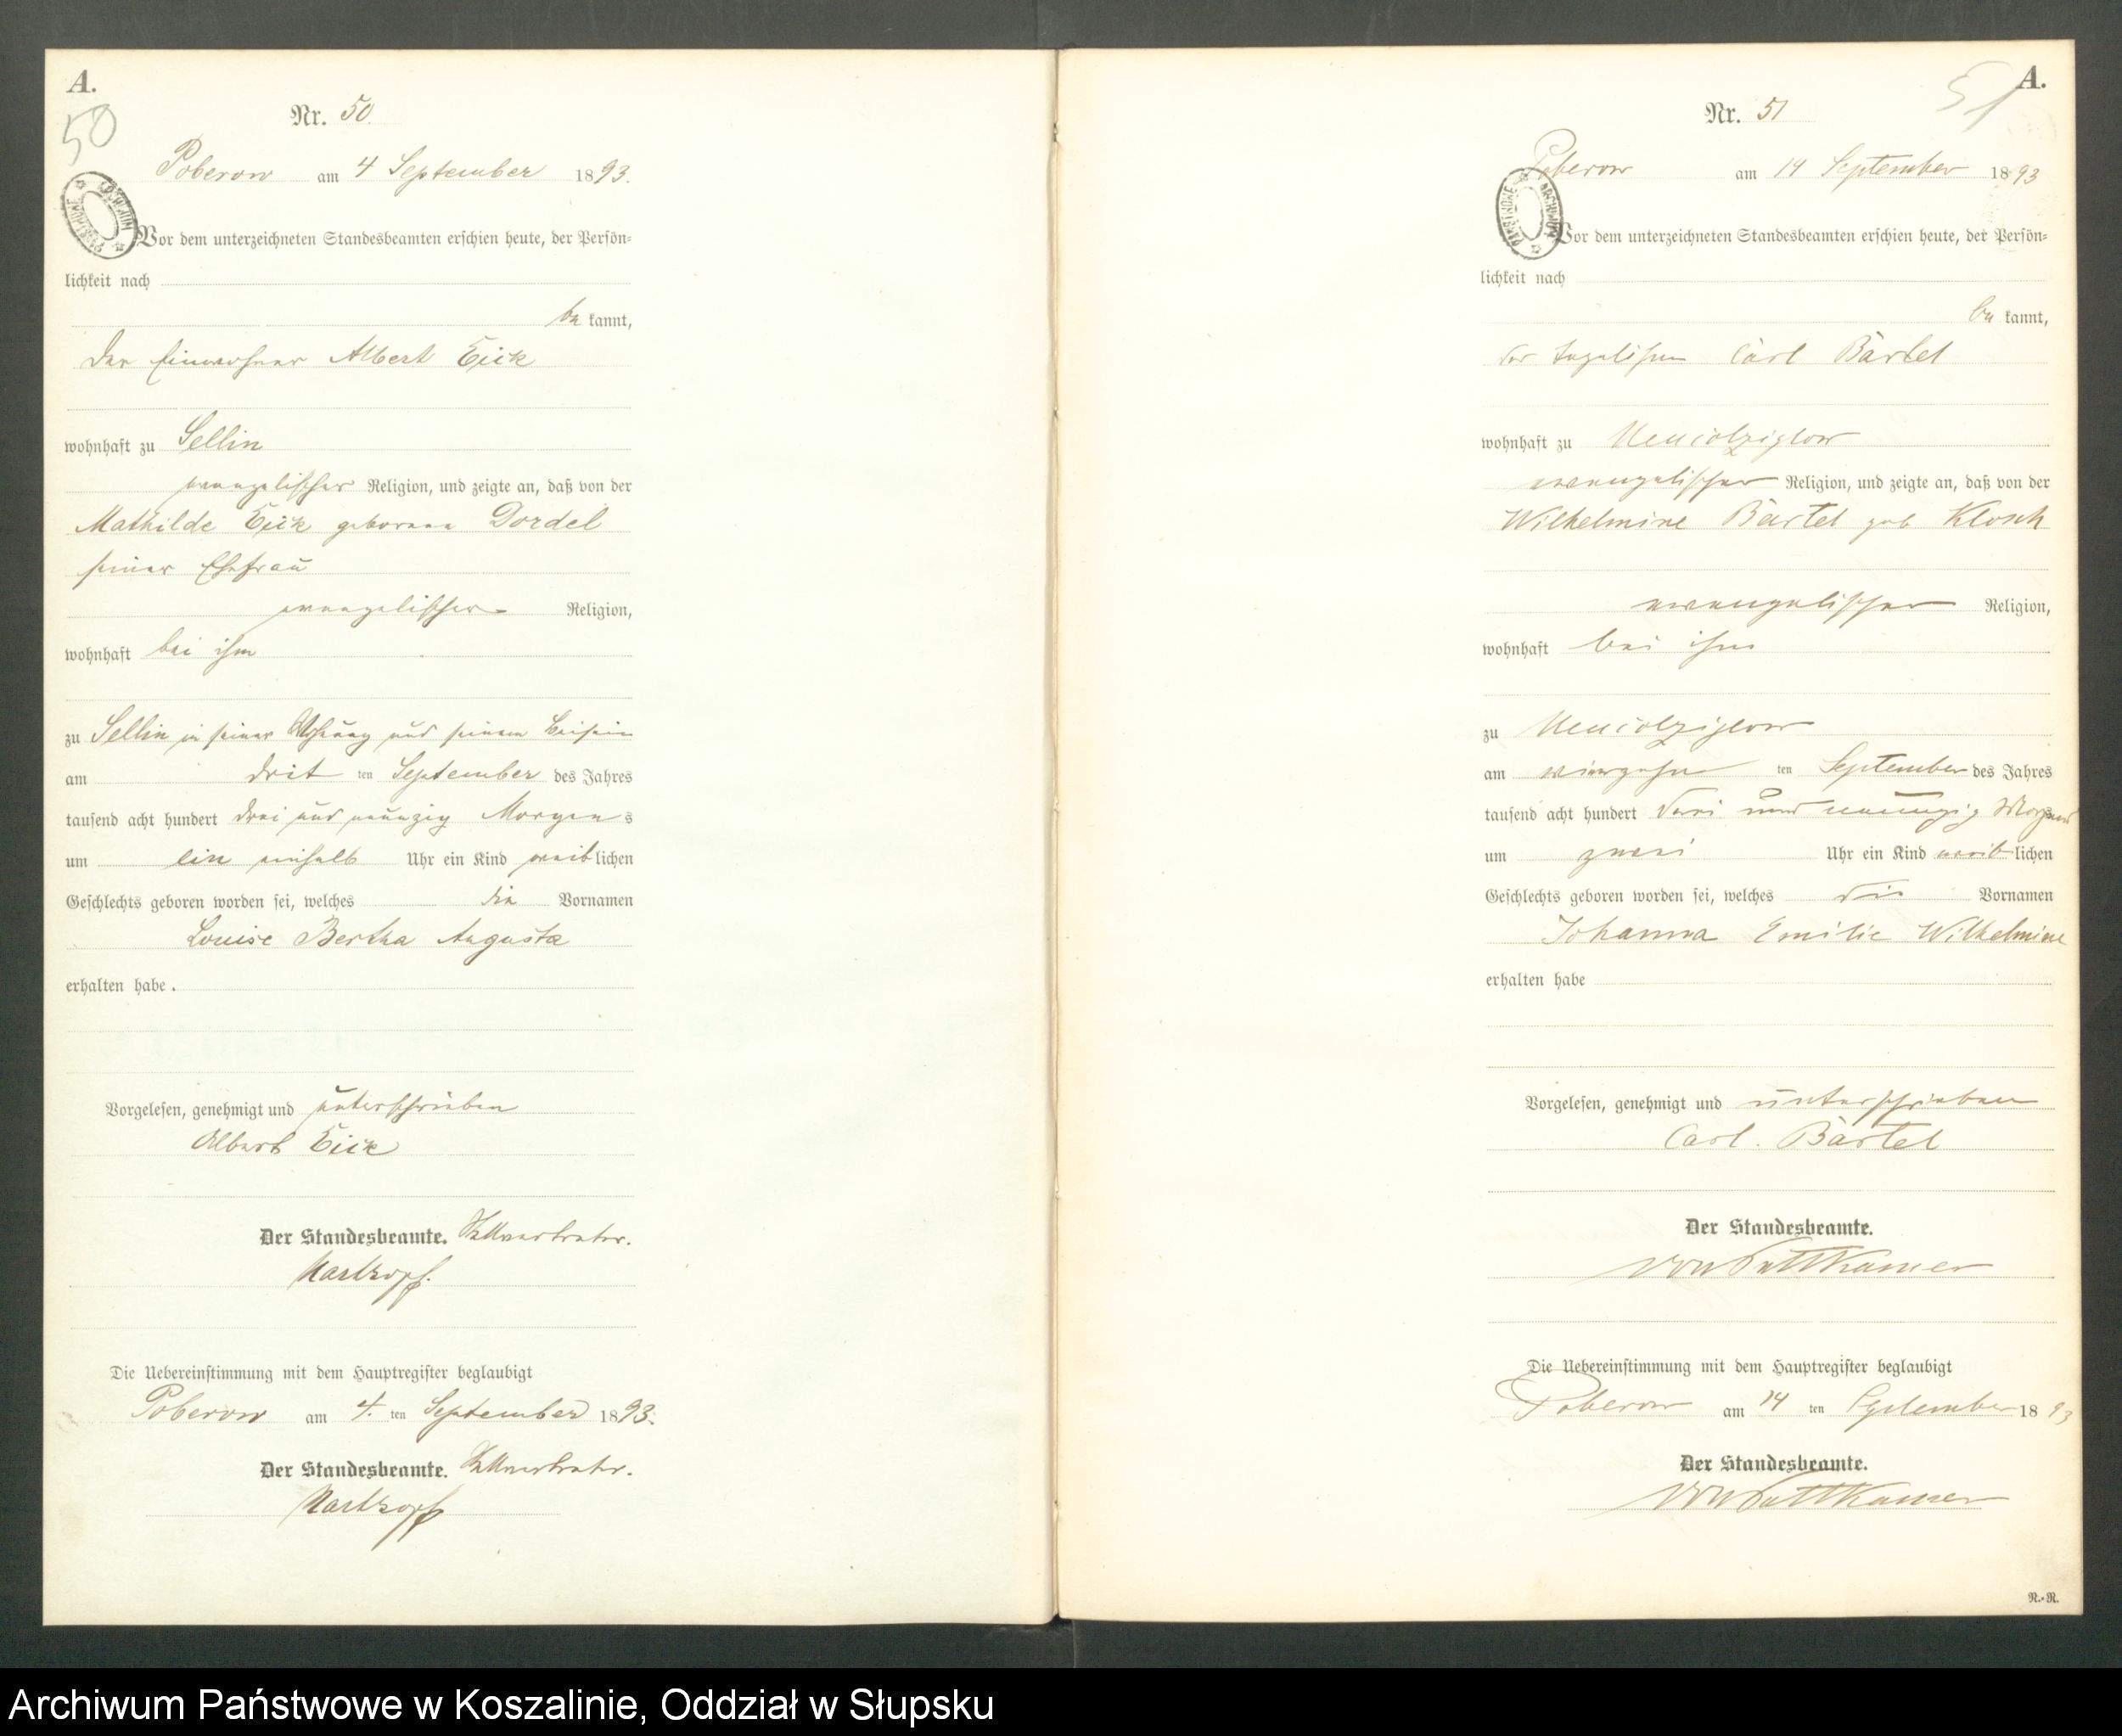 A.
50
Nr. 50.
Poberow am 4 September 1893.
Vor dem unterzeichneten Standesbeamten erschien heute, der Persön-
lichkeit nach
be kannt,
der Einwohner Albert Eick
wohnhaft zu Sellin
evangelischer Religion, und zeigte an, daß von der
Mathilde Eick geborene Dordel
seiner Ehefrau
evangelischer Religion,
wohnhaft bei ihm
zu Sellin in seiner Wohnung und seinem Beisein
am dritten September des Jahres
tausend acht hundert drei und neunzig Morgens
um ein einhalb Uhr ein Kind weiblichen
Geschlechts geboren worden sei, welches die Vornamen
Louise Bertha Auguste
erhalten habe.
Vorgelesen, genehmigt und unterschrieben
Albert Eick
Der Standesbeamte. Stellvertreter.
Hartkopf.
Die Uebereinstimmung mit dem Hauptregister beglaubigt
Poberow am 4. ten September 1893.
Der Standesbeamte. Stellvertreter.
Hartkopf
A.
51
Nr. 51
Poberow am 14 September 1893
ARCHIWUM PAŃSTWOWE
Vor dem unterzeichneten Standesbeamten erschien heute, der Persön-
lichkeit nach
be kannt,
der Carl Bartel
wohnhaft zu Neucolziglow
evangelischer Religion, und zeigte an, daß von der
Wilhelmine Bartel geb
evangelischer Religion,
wohnhaft bei ihm
zu Neucolziglow
am vierzehn ten September des Jahres
tausend acht hundert drei und neunzig Morgens
um zwei Uhr ein Kind weiblichen
Geschlechts geboren worden sei, welches die Vornamen
Johanna Emilie Wilhelmine
erhalten habe
Vorgelesen, genehmigt und unterschrieben
Carl. Bartel
Der Standesbeamte.
von Puttkamer
Die Uebereinstimmung mit dem Hauptregister beglaubigt
Poberow am 14 ten September 1893
Der Standesbeamte.
von Puttkamer
N.-N.
Archiwum Państwowe w Koszalinie, Oddział w Słupsku